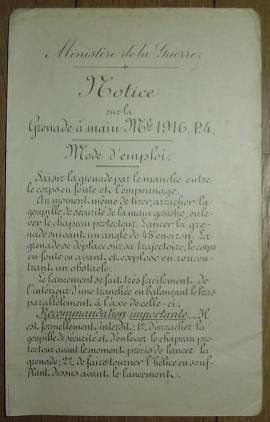 Ministère de la Guerre.
Notice
sur la
Grenade à main Mle 1916. P.4.
Mode d'emploi.
Saisir la grenade par le manche entre
le corps en fonte et l'empennage.
Au moment même de tirer, arracher la
goupille de sécurité de la main gauche, enle-
ver le chapeau protecteur. Lancer la gre-
nade suivant un angle de 45° environ. La
grenade se déplace sur sa trajectoire, le corps
en fonte en avant, et explose en rencon-
trant un obstacle.
Le lancement se fait très facilement de
l'intérieur d'une tranchée en balançant le bras
parallèlement à l'axe de celle-ci.
Recommandation importante. Il
est formellement interdit: 1° d'arracher la
goupille de sécurité et d'enlever le chapeau pro-
tecteur avant le moment précis de lancer la
grenade; 2° de faire tourner l'hélice en souf-
flant dessus avant le lancement.